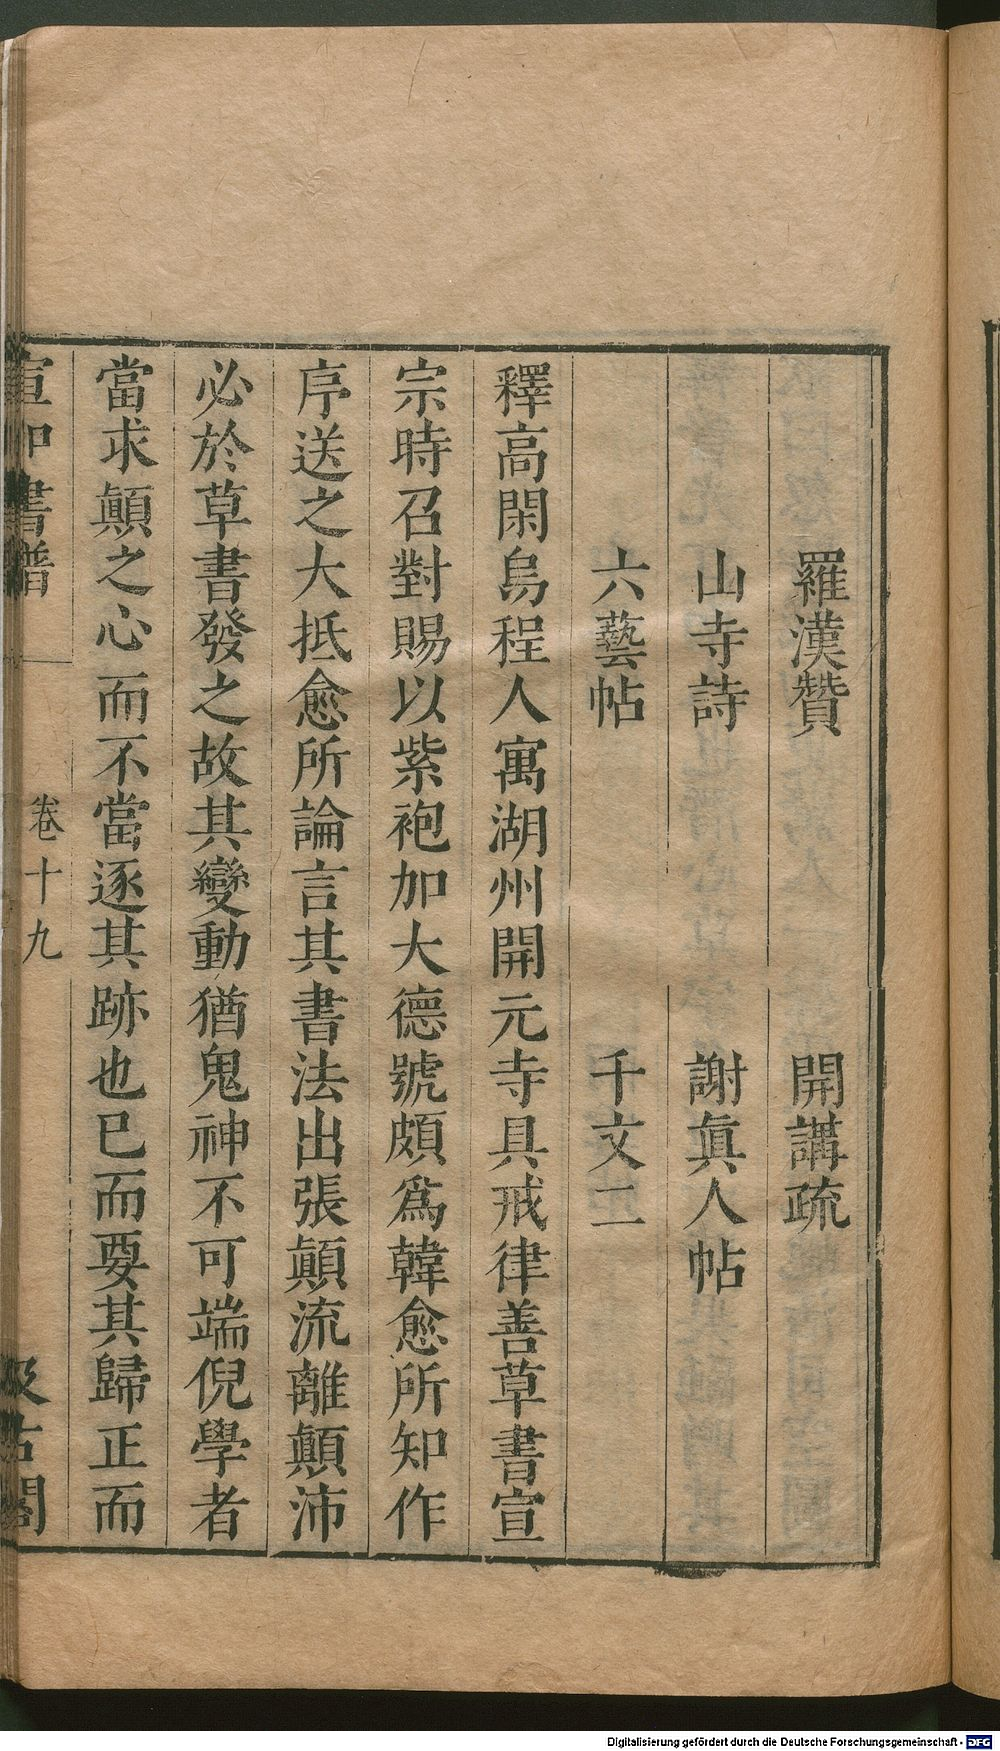 羅漢贊　開講疏
山寺詩　謝眞人帖
六藝帖　千文二
釋高閑烏程人寓湖州開元寺具戒律善草書宣
宗時召對賜以紫袍加大德號頗爲韓愈所知作
序送之大抵愈所論言其書法出張顛流離顛沛
必於草書發之故其變動猶鬼神不可端倪學者
當求顛之心而不當逐其跡也巳而要其歸正而
宣和書譜　卷十九　汲古閣
Digitalisierung gefördert durch die Deutsche Forschungsgemeinschaft - DFG